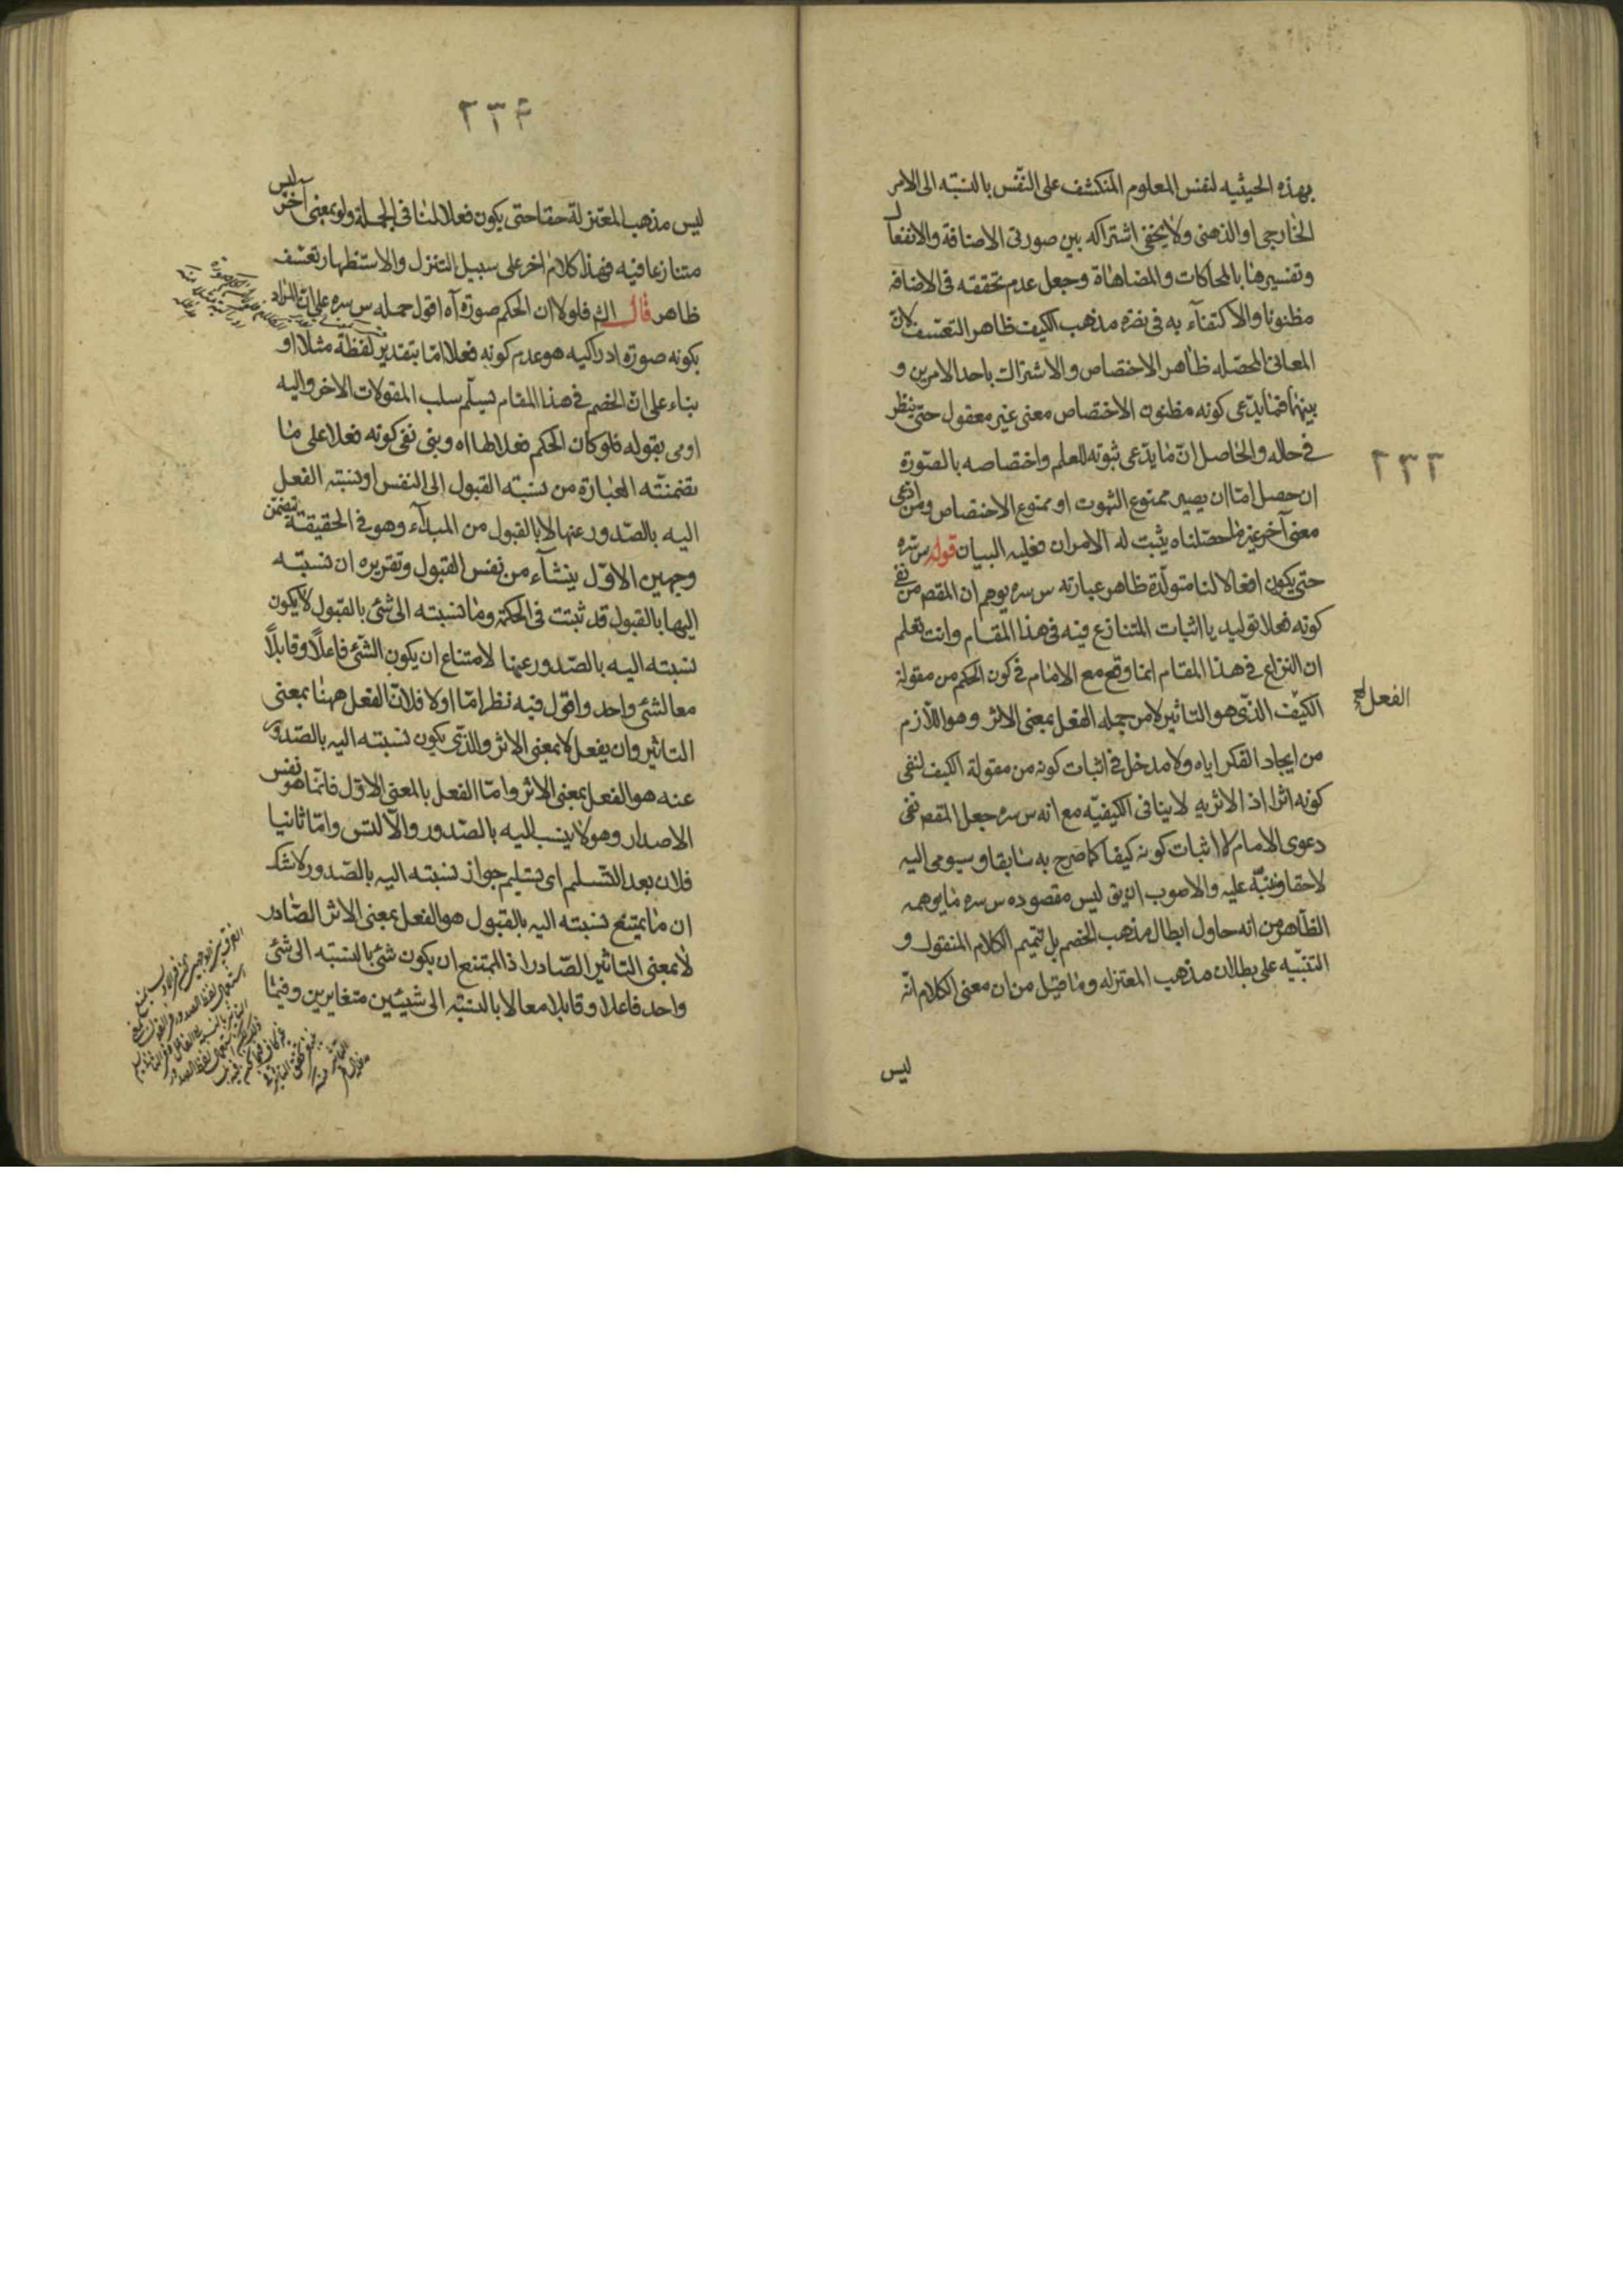 بهذه الحيثيه لنفس المعلوم المنكشف على النفس بالنسبة الى الامر
الخارجى او الذهنى ولا يخفى اشتراكه بين صورتى الاضافة والانفعال
وتفسيرها بالمحاكات والمضاهاة وجعل عدم تحققه فى الاضافه
مظنونا والاكتفاء به فى نصرة مذهب الكيف ظاهر التعسف لان
المعانى المحصله ظاهر الاختصاص والاشتراك باحد الامرين و
بينهما فما يدعى كونه مظنون الاختصاص معنى غير معقول حتى ينظر
فى حاله والحاصل ان ما يدعى ثبوته للعلم واختصاصه بالصورة
ان حصل اما ان يصير ممنوع الثبوت او ممنوع الاختصاص ومن ادعى
معنى آخر غير ما حصلناه يثبت له الامران فعليه البيان قوله س سره
حتى يكون افعالا لنا متولدة ظاهر عبارته س سره يوهم ان المقصد من نفى
كونه فعلا توليديا اثبات المتنازع فيه فى هذا المقام وانت تعلم
ان النزاع فى هذا المقام انما وقع مع الامام فى كون الحكم من مقولة
الفعل
الكيف الذى هو التاثير لا من جمله الفعل بمعنى الاثر وهو اللازم
من ايجاد الفكر اياه ولا مدخل فى اثبات كونه من مقولة الكيف لنفى
كونه اثرا اذ الاثريه لا ينافى الكيفيه مع انه س سره جعل المقصد نفى
دعوى الامام لا اثبات كونه كيفا كما صرح به سابقا وسيومى اليه
لاحقا وننبه عليه والاصوب ان يق ليس مقصوده س سره ما يوهمه
الظاهر من انه حاول ابطال مذهب الخصم بل تتميم الكلام المنقول و
التنبيه على بطلان مذهب المعتزله وما قيل من ان معنى الكلام انه
ليس
٢٣٣
٢٣٤
ليس مذهب المعتزلة حقا حتى يكون فعلا لنا فى الجملة ولو بمعنى آخر ليس
متنازعا فيه فهذا كلام اخر على سبيل التنزل والاستظهار تعسف
ظاهر قال الش فلولا ان الحكم صورة آه اقول حمله س سره على ان المراد
بكونه صورة ادراكيه هو عدم كونه فعلا اما بتقدير لفظة مثلا او
بناء على ان الخصم فى هذا المقام يسلم سلب المقولات الاخر واليه
اومى بقوله فلو كان الحكم فعلا لها اه وبنى نفى كونه فعلا على ما
تضمنته العبارة من نسبة القبول الى النفس او نسبته الفعل
اليه بالصدور عنها لا بالقبول من المبدآء وهو فى الحقيقة تضمن
وجهين الاول ينشآء من نفس القبول وتقريره ان نسبته
اليها بالقبول قد ثبتت فى الحكمة وما نسبته الى شئ بالقبول لا يكون
نسبته اليه بالصدور عنها لامتناع ان يكون الشئ فاعلا وقابلا
معا لشئ واحد واقول فيه نظر اما اولا فلان الفعل ههنا بمعنى
التاثير وان يفعل لا بمعنى الاثر والذى يكون نسبته اليه بالصدور
عنه هو الفعل بمعنى الاثر واما الفعل بالمعنى الاول فانما هو نفس
الاصدار وهو لا ينسب اليه بالصدور والا لتس واما ثانيا
فلان بعد التسلم اى تسليم جواز نسبته اليه بالصدور لا شك
ان ما يمتنع نسبته اليه بالقبول هو الفعل بمعنى الاثر الصادر
لا بمعنى التاثير الصادر اذ الممتنع ان يكون شئ بالنسبه الى شئ
واحد فاعلا وقابلا معا لا بالنسبة الى شيئين متغايرين وفيما